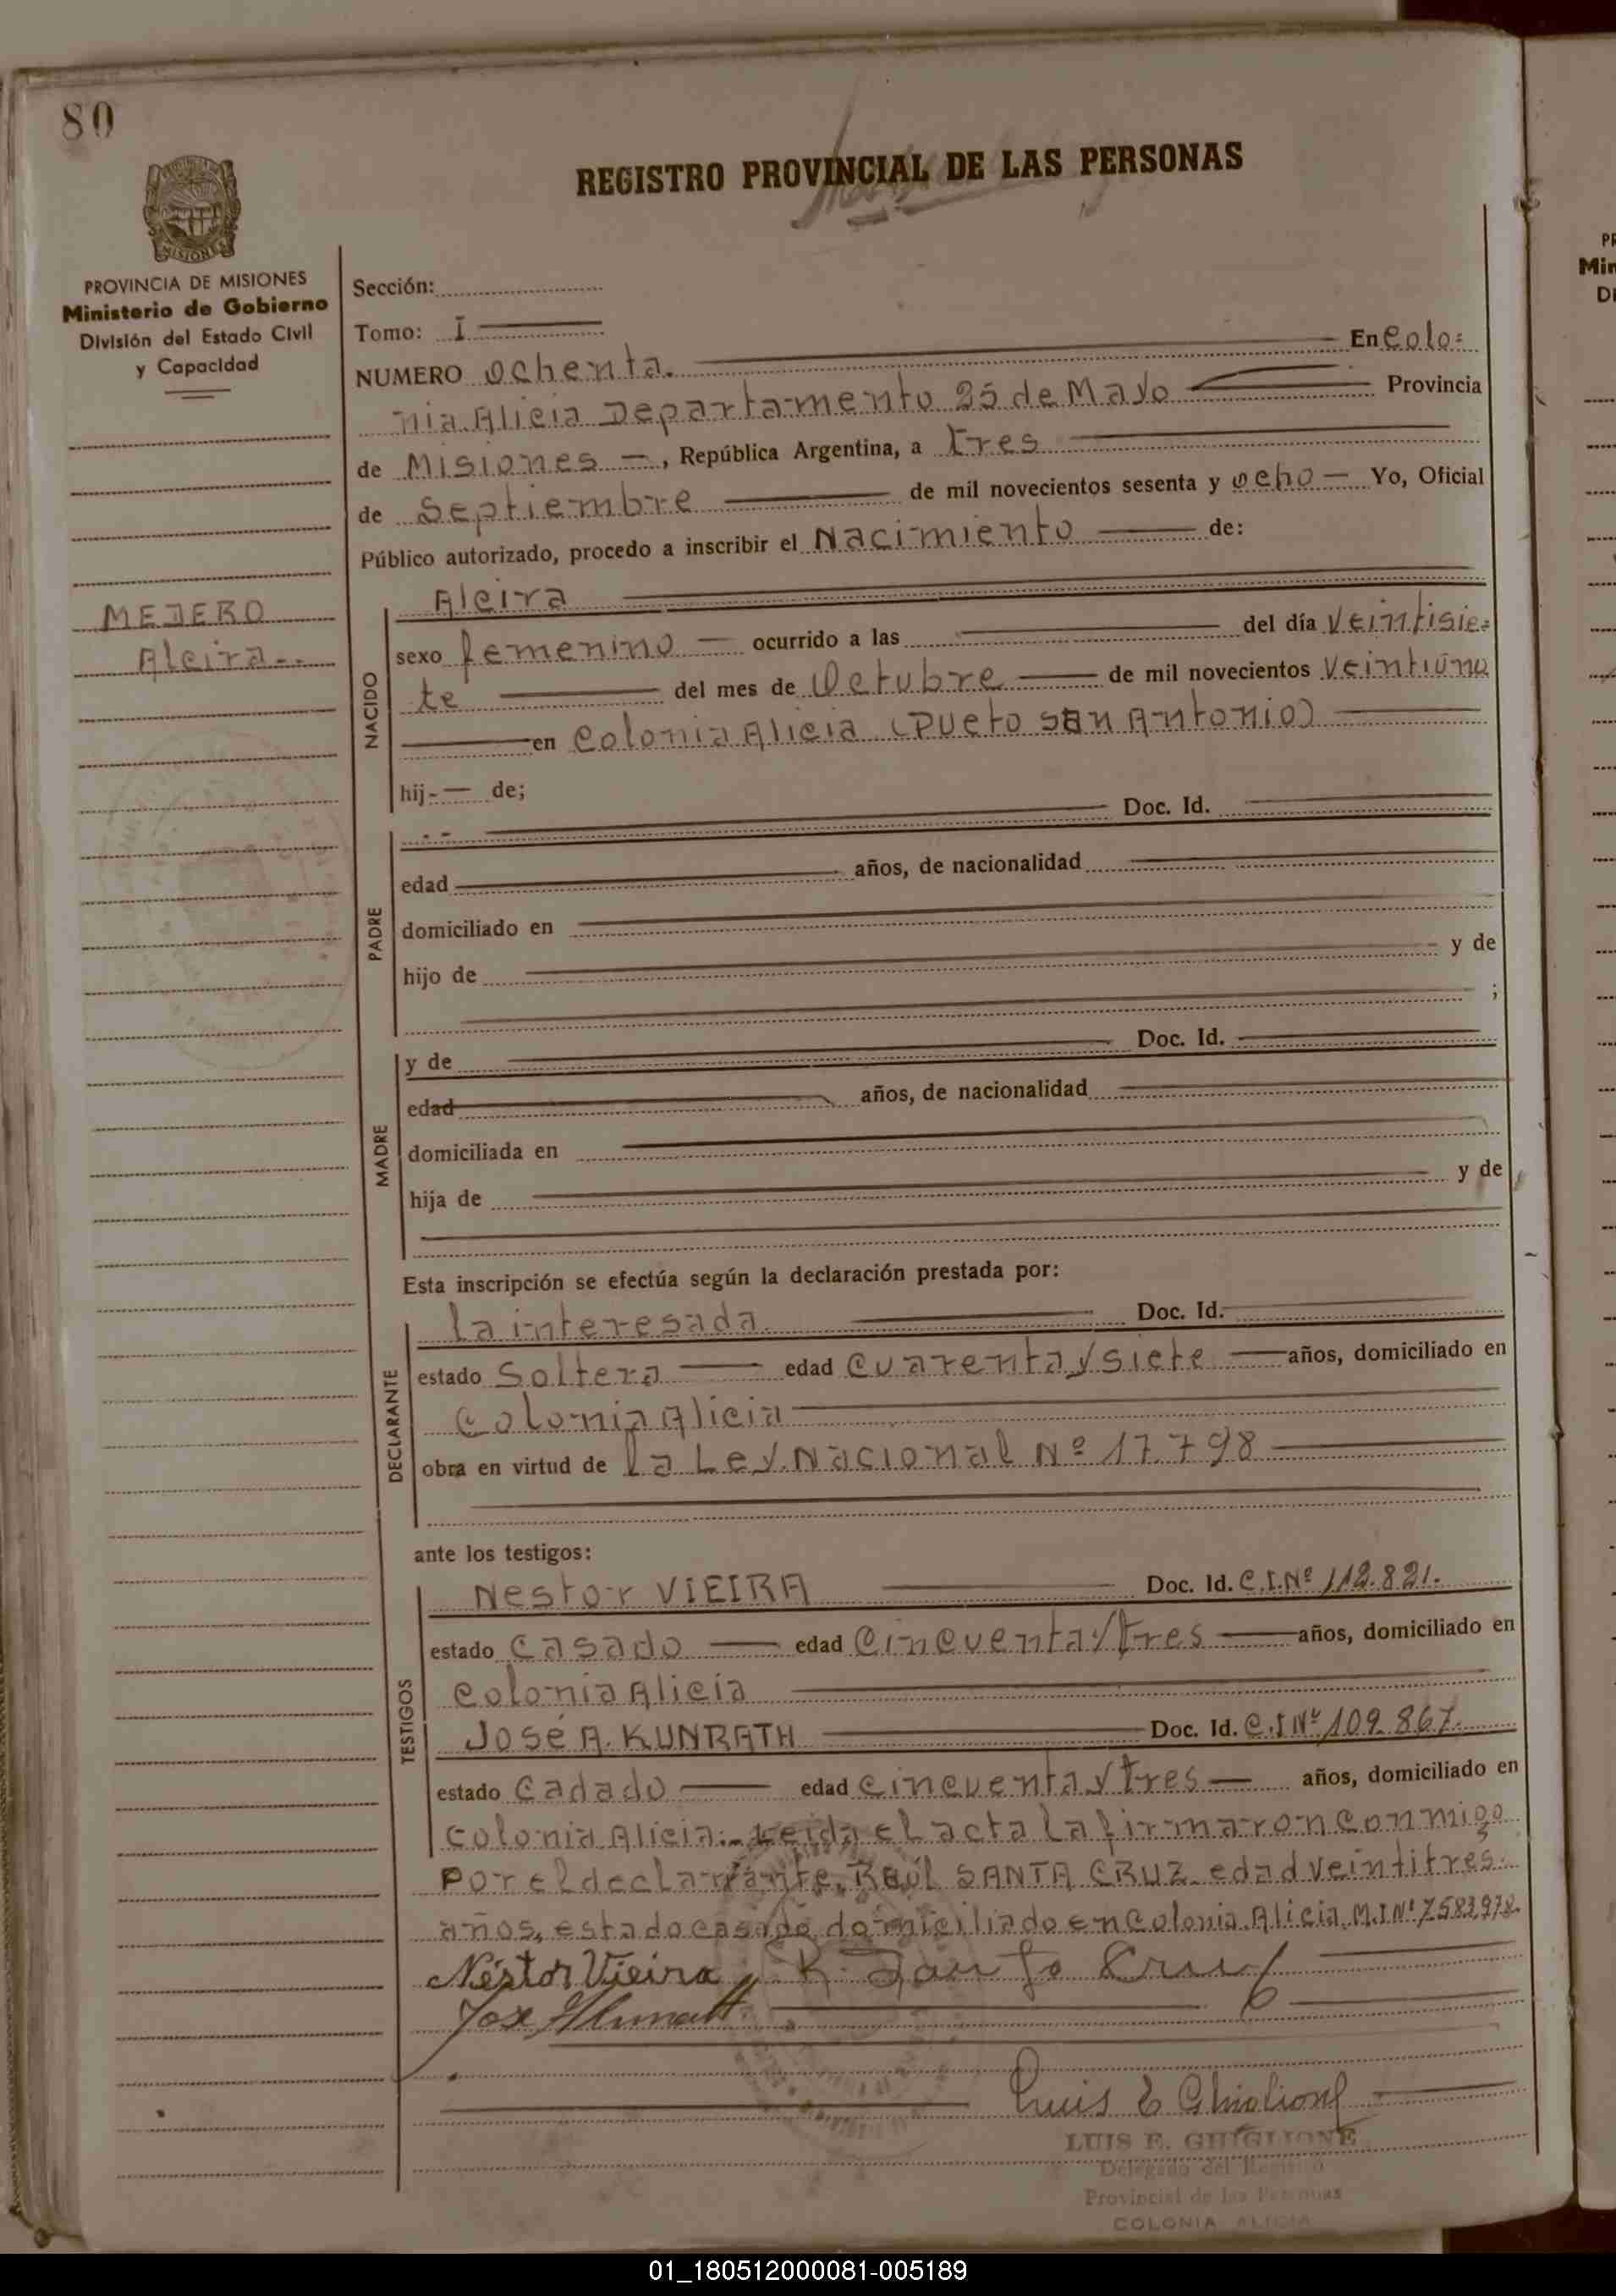 80
REGISTRO PROVINCIAL DE LAS PERSONAS
MISIONES
PROVINCIA DE MISIONES
Ministerio de Gobierno
División del Estado Civil
y Capacidad
MEJERO
Alcira
Sección:
Tomo: I
NUMERO Ochenta. En Colo=
nia Alicia Departamento 25 de Mayo Provincia
de Misiones, República Argentina, a tres
de Septiembre de mil novecientos sesenta y ocho Yo, Oficial
Público autorizado, procedo a inscribir el Nacimiento de:
NACIDO
Alcira
sexo femenino ocurrido a las del día Veintisie=
te del mes de Octubre de mil novecientos Veintiuno
en Colonia Alicia (Pueto San Antonio)
hij- de;
PADRE
Doc. Id.
edad años, de nacionalidad
domiciliado en
hijo de y de
;
MADRE
y de Doc. Id.
edad años, de nacionalidad
domiciliada en
hija de y de
Esta inscripción se efectúa según la declaración prestada por:
DECLARANTE
la interesada Doc. Id.
estado Soltera edad Cuarenta y siete años, domiciliado en
Colonia Alicia
obra en virtud de la Ley Nacional Nº 17.798
ante los testigos:
TESTIGOS
Nestor VIEIRA Doc. Id. C.I.Nº 112.821.
estado Casado edad Cincuenta y tres años, domiciliado en
Colonia Alicia
José A. KUNRATH Doc. Id. C.I Nº 109.867.
estado Cadado edad Cincuenta y tres años, domiciliado en
Colonia Alicia.- Leida el acta la firmaron conmigo
por el declarante, Raúl SANTA CRUZ edad veintitres
años, estado casado domiciliado en Colonia Alicia M.I Nº 7.583.978.
Néstor Vieira R. Santa Cruz
Luis E Ghiglione
LUIS E. GHIGLIONE
Delegado del Registro
Provincial de las Personas
COLONIA ALICIA
01_180512000081-005189